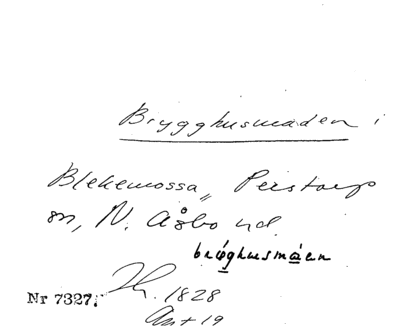 Brygghusmaden i
Blekemossa, Perstorp
sn, N. Åsbo hd.
brøghusmáen
Nr 7327. 1828
Ant 19